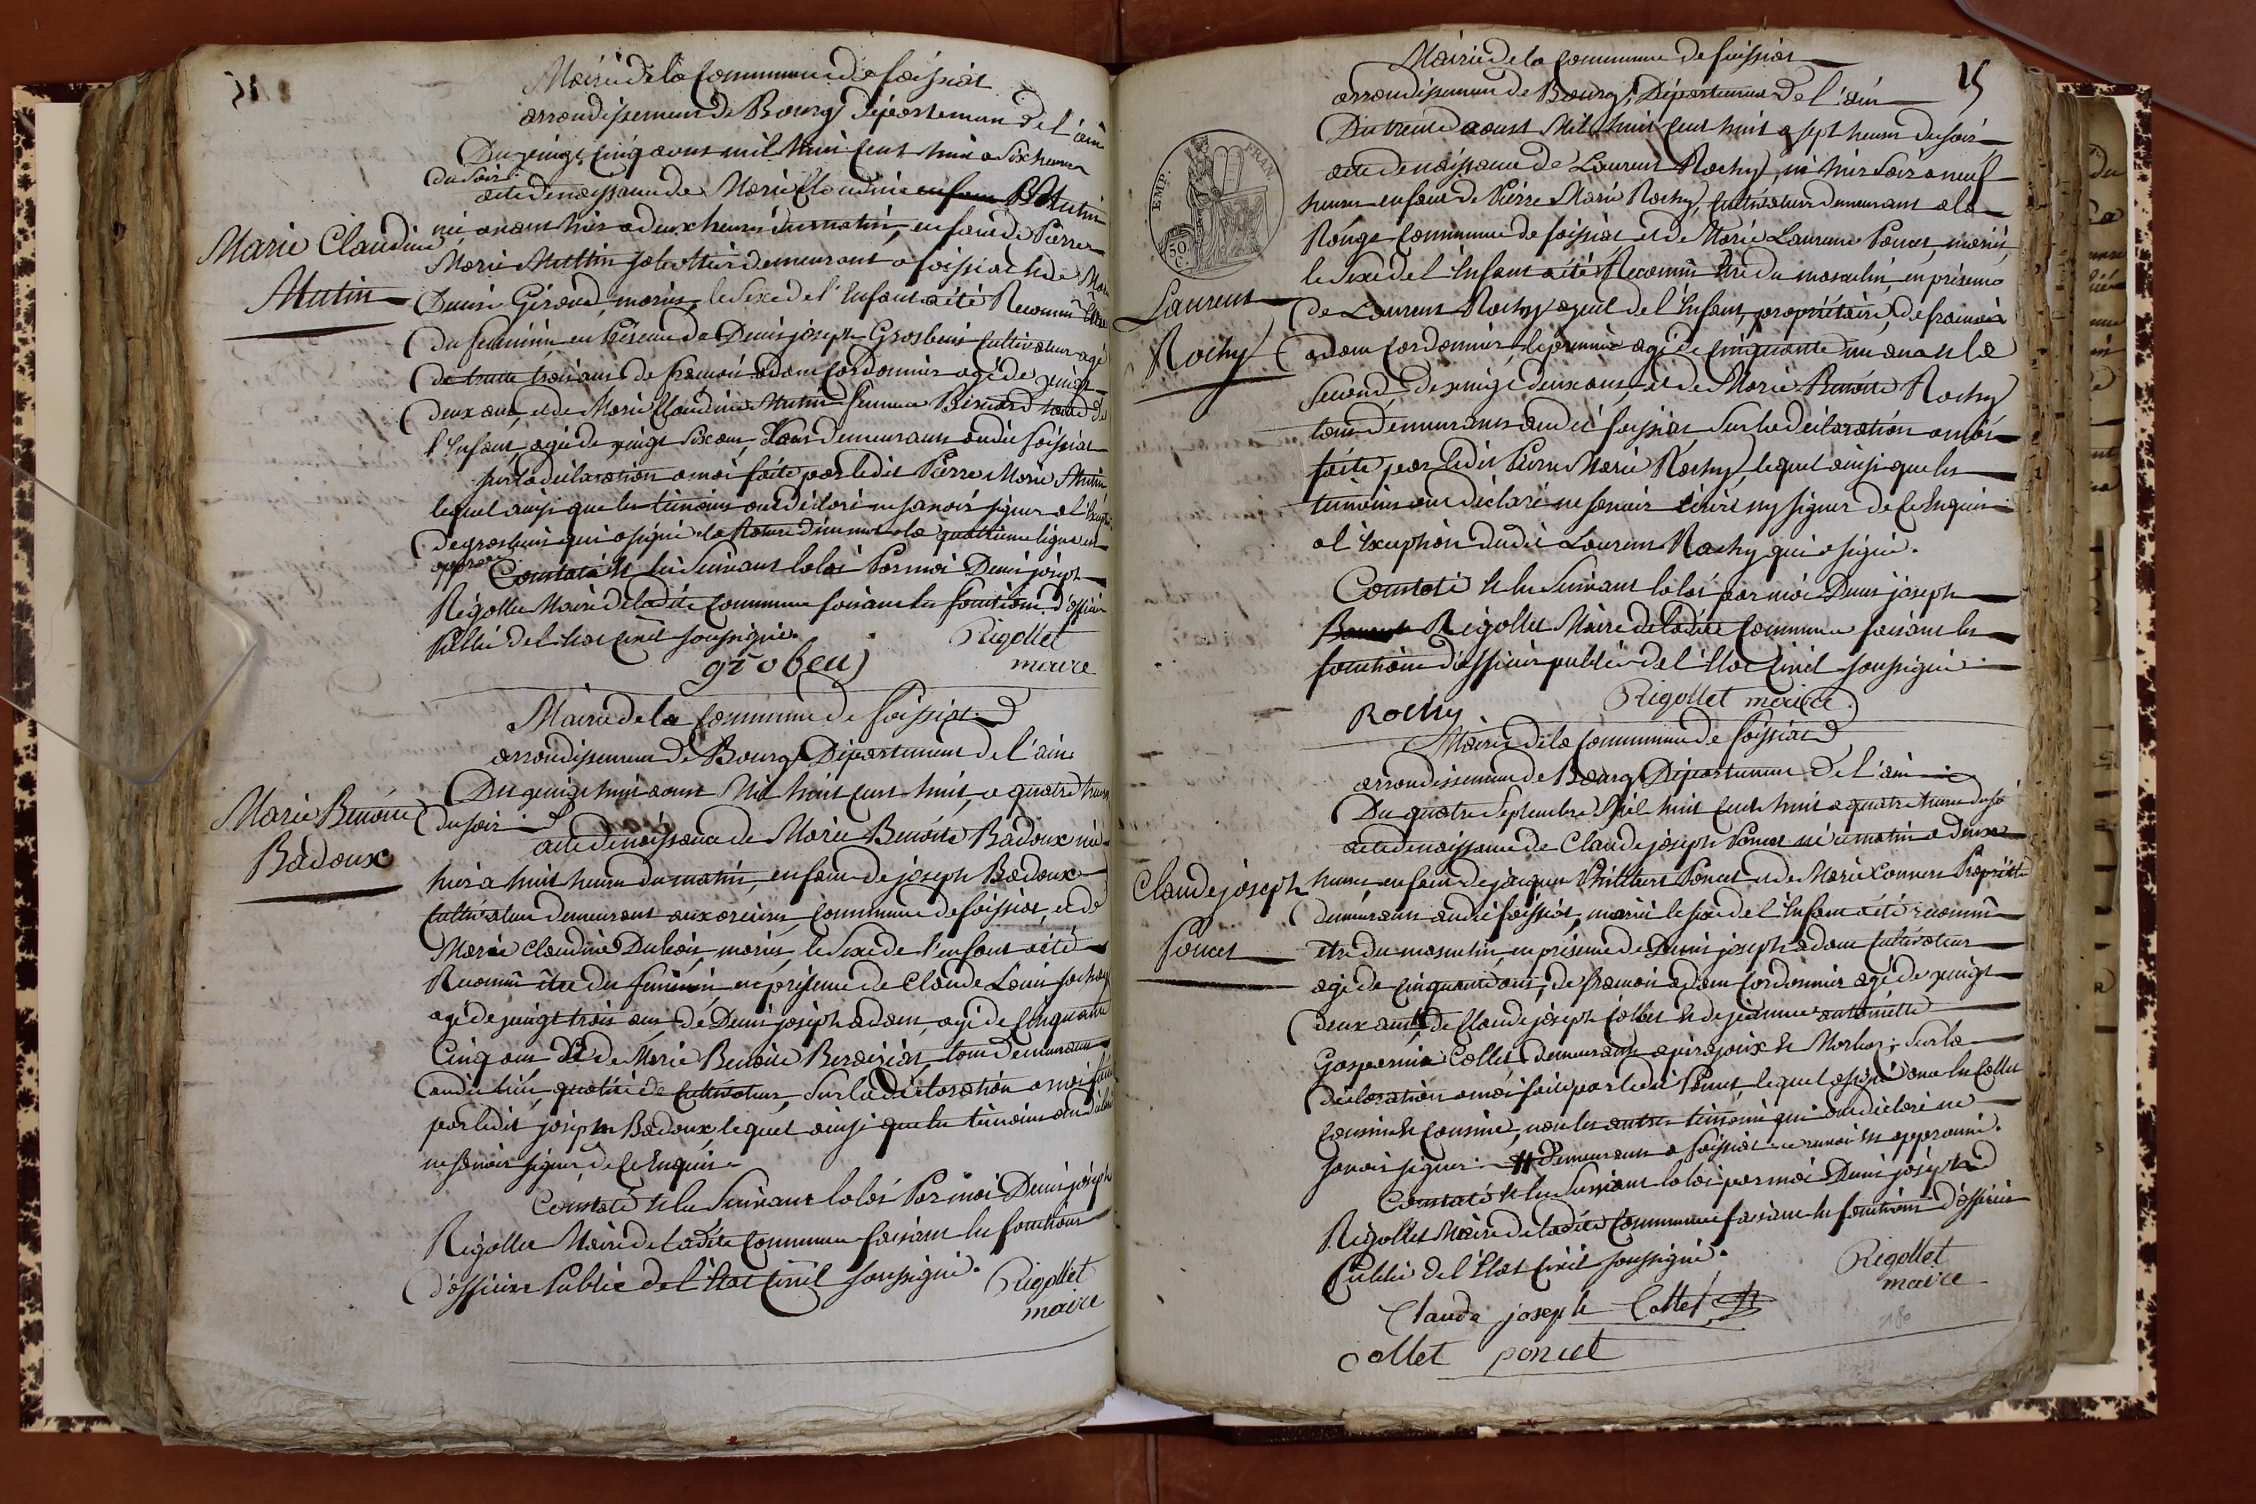 Mairie de la Commune de foissiat
arrondissement de Bourg Département de l'ain
Du vingt cinq aoust mil huit cent huit a Six heures
du Soir
acte de naissance de Marie Claudine enfant Mutin
née avant hier a deux heures du matin, enfant de Pierre
Marie Claudine
Mutin
Marie Muttin sabottier demeurant a foissiat et de
Denise Giroud, mariés, le Sexe de l'Enfant a été Reconnu être
du feminin en Présence de Denis joseph Grosbuis Cultivateur agé
de trente trois ans de framois adam Cordonnier agé de vingt
deux ans, et de Marie Claudine Mutin femme Bernard tante de
l'Enfant, agée de vingt Six ans, tous demeurans audit foissiat
sur la déclaration a moi faite par ledit Pierre Marie Mutin
lequel ainsi que les témoins ont déclaré ne savoir signer a l'Exception
de grosbuis qui a signé la Rature d'un mot a la quattrieme ligne est
approuvée
Constaté et lu Suivant la loi Par moi Denis joseph
Rigollet Maire de ladite Commune faisant les fonctions d'officier
Public de l'Etat Civil soussigné.
Rigollet
grobeuj
maire
Mairie de la Commune de foissiat
arrondissement de Bourg Département de l'ain
Marie Benoite
Badoux
Du vingt huit aoust Mil huit cent huit, a quatre heures
du soir
acte de naissance de Marie Benoite Badoux née
hier a huit heures du matin, enfant de joseph Badoux
Cultivateur demeurant aux Commune de foissiat, et de
Marie Claudine Dubois, mariés, le Sexe de l'enfant a été
Reconnu être du feminin, en présence de Claude Louis
agé de vingt trois ans de Denis joseph adam, agé de Cinquante
Cinq ans et de Marie Benoite tous demeurans
audit lieu, qualité de Cultivateurs, Sur la déclaration a moi faite
par ledit joseph Badoux lequel ainsi que les témoins ont déclaré
ne savoir signer de ce Enquis
Constaté et lu Suivant la loi Par moi Denis joseph
Rigollet Maire de ladite Commune faisant les fonctions
d'officier Public de l'Etat Civil soussigné.
Rigollet
maire
Mairie de la Commune de foissiat
15
arrondissement de Bourg, Département de l'ain
Du trente aoust Mil huit Cent huit a sept heures du soir
acte de naissance de Laurent Rochy né hier soir a neuf
EMP. FRAN.
50 C.
heures enfant de Pierre Marie Rochy, Cultivateur demeurant a la
Rouge Commune de foissiat et de Marie Laurence Poncet, mariés,
le Sexe de l'Enfant a été Reconnu être du masculin en présence
Laurent
Rochy
de Laurent Rochy ayeul de l'Enfant, propriétaire, de framois
adam Cordonnier, le premier agé de Cinquante un ans et le
Second de vingt deux ans, et de Marie Benoite Rochy
tous demeurans audit foissiat Sur la déclaration a moi
faite par ledit Pierre Marie Rochy, lequel ainsi que les
témoins ont déclaré ne savoir écrire ny signer de ce Enquis
a l'Exception dudit Laurent Rochy qui a signé.
Constaté et lu Suivant la loi par moi Denis joseph
Rigollet Maire de ladite Commune faisant les
fonctions d'officier public de l'Etat Civil soussigné
Rochy
Rigollet maire
Mairie de la Commune de foissiat
arrondissement de Bourg Département de l'ain
Du quatre Septembre Mil huit Cent huit a quatre heures du soir
acte de naissance de Claude joseph Poncet né ce matin a deux
Claude joseph
Poncet
heures, enfant de jacques Philibert Poncet et de Marie Connere Propriétaires
demeurans audit foissiat, mariés le sexe de l'Enfant a été reconnu
être du masculin, en présence de Denis joseph adam Cultivateur
agé de Cinquante ans, de framois adam Cordonnier agé de vingt
deux ans # de Claude joseph Collet et de jeanne antoinette
Gasparine Collet demeurants a pirajoux et Marboz. Sur la
déclaration a moi faite par ledit Poncet lequel a signé avec les Collet
Cousin et Cousine, non les autres témoins qui ont déclaré ne
savoir signer. # demeurans a foissiat ce renvoi est approuvé.
Constaté et lu Suivant la loi par moi Denis joseph
Rigollet Maire de ladite Commune faisant les fonctions d'officier
Public de l'Etat Civil soussigné.
Rigollet
maire
Claude joseph Collet
Collet poncet
180